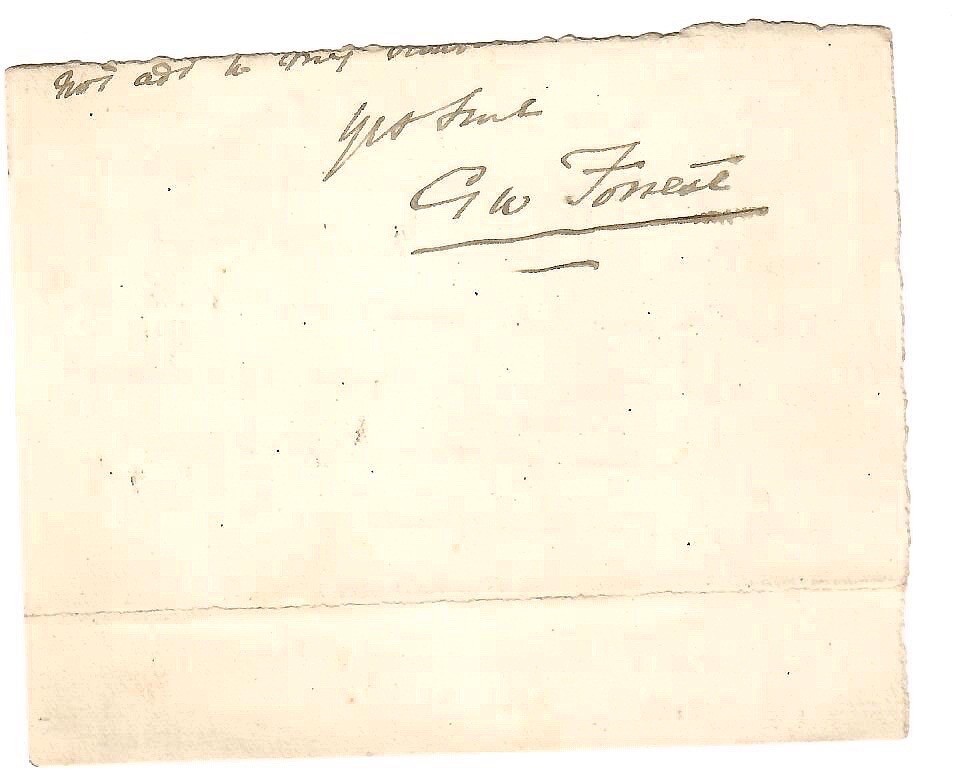 not add to my
Yrs truly
G W Forrest